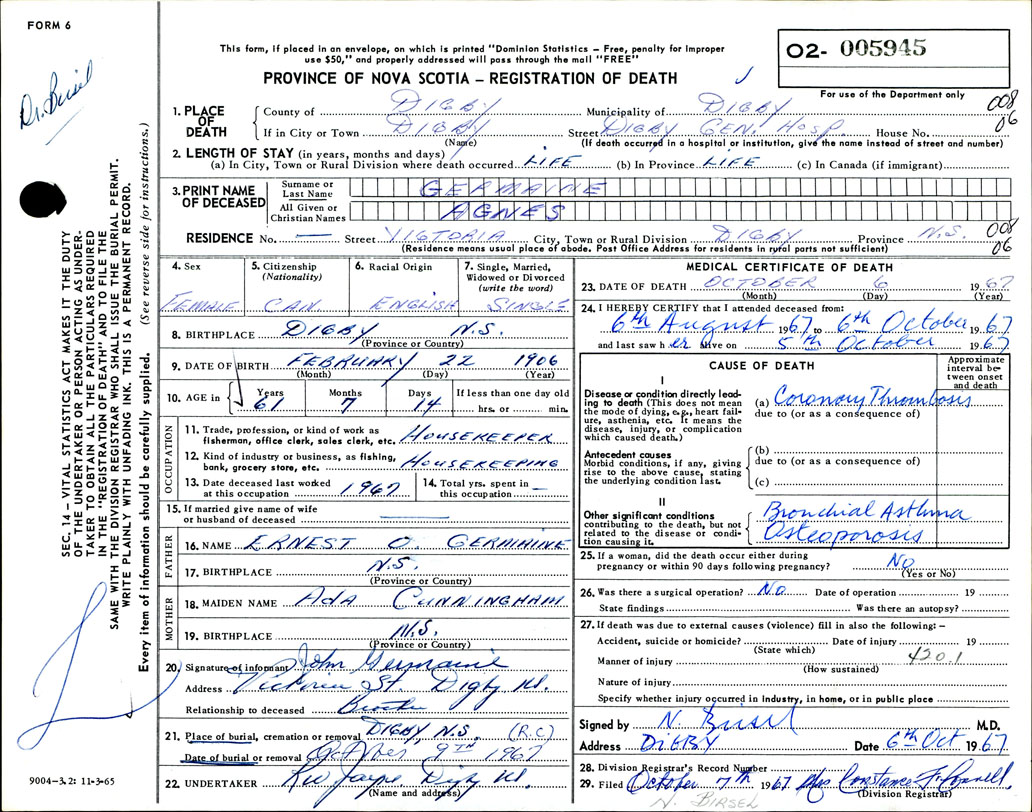 FORM 6
Dr. Birsel
This form, if placed in an envelope, on which is printed "Dominion Statistics – Free, penalty for improper
use $50," and properly addressed will pass through the mail "FREE"
PROVINCE OF NOVA SCOTIA – REGISTRATION OF DEATH
02- 005945
For use of the Department only
008
06
1. PLACE OF DEATH
County of DIGBY Municipality of DIGBY
If in City or Town DIGBY Street DIGBY GEN. HOSP. House No.
(Name) (If death occurred in a hospital or institution, give the name instead of street and number)
2. LENGTH OF STAY (in years, months and days)
(a) In City, Town or Rural Division where death occurred LIFE (b) In Province LIFE (c) In Canada (if immigrant)
3. PRINT NAME OF DECEASED
Surname or Last Name GERMAINE
All Given or Christian Names AGNES
RESIDENCE No. — Street VICTORIA City, Town or Rural Division DIGBY Province N.S.
(Residence means usual place of abode. Post Office Address for residents in rural parts not sufficient)
008
06
4. Sex
FEMALE
5. Citizenship (Nationality)
CAN.
6. Racial Origin
ENGLISH
7. Single, Married, Widowed or Divorced (write the word)
SINGLE
8. BIRTHPLACE DIGBY N.S.
(Province or Country)
9. DATE OF BIRTH FEBRUARY 22 1906
(Month) (Day) (Year)
10. AGE in Years Months Days If less than one day old
61 7 14 hrs. or min.
OCCUPATION
11. Trade, profession, or kind of work as
fisherman, office clerk, sales clerk, etc. HOUSEKEEPER
12. Kind of industry or business, as fishing,
bank, grocery store, etc. HOUSEKEEPING
13. Date deceased last worked
at this occupation 1967
14. Total yrs. spent in
this occupation —
15. If married give name of wife
or husband of deceased
FATHER
16. NAME ERNEST O GERMAINE
17. BIRTHPLACE N.S.
(Province or Country)
MOTHER
18. MAIDEN NAME ADA CUNNINGHAM
19. BIRTHPLACE N.S.
(Province or Country)
20. Signature of informant John Germaine
Address Victoria St. Digby N.S.
Relationship to deceased Brother
21. Place of burial, cremation or removal DIGBY, N.S. (R.C.)
Date of burial or removal October 9TH 1967
22. UNDERTAKER Digby N.S.
(Name and address)
MEDICAL CERTIFICATE OF DEATH
23. DATE OF DEATH OCTOBER 6 1967
(Month) (Day) (Year)
24. I HEREBY CERTIFY that I attended deceased from:
6th August 1967 to 6th October 1967
and last saw her alive on 5th October 1967
CAUSE OF DEATH
Approximate interval between onset and death
I
Disease or condition directly leading to death (This does not mean the mode of dying, e.g., heart failure, asthenia, etc. It means the disease, injury, or complication which caused death.)
(a) Coronary Thrombosis
due to (or as a consequence of)
Antecedent causes
Morbid conditions, if any, giving rise to the above cause, stating the underlying condition last.
(b)
due to (or as a consequence of)
(c)
II
Other significant conditions
contributing to the death, but not related to the disease or condition causing it.
Bronchial Asthma
Osteoporosis
25. If a woman, did the death occur either during
pregnancy or within 90 days following pregnancy? No
(Yes or No)
26. Was there a surgical operation? No Date of operation 19
State findings Was there an autopsy?
27. If death was due to external causes (violence) fill in also the following: –
Accident, suicide or homicide? Date of injury 19
(State which)
Manner of injury 420.1
(How sustained)
Nature of injury
Specify whether injury occurred in industry, in home, or in public place
Signed by N. Birsel M.D.
Address DIGBY Date 6th Oct 1967
28. Division Registrar's Record Number
29. Filed October 7th 1967 Mrs Constance
(Division Registrar)
N. BIRSEL
SEC. 14 – VITAL STATISTICS ACT MAKES IT THE DUTY
OF THE UNDERTAKER OR PERSON ACTING AS UNDER-
TAKER TO OBTAIN ALL THE PARTICULARS REQUIRED
IN THE "REGISTRATION OF DEATH" AND TO FILE THE
SAME WITH THE DIVISION REGISTRAR WHO SHALL ISSUE THE BURIAL PERMIT.
WRITE PLAINLY WITH UNFADING INK. THIS IS A PERMANENT RECORD.
Every item of information should be carefully supplied. (See reverse side for instructions.)
9004-3.2: 11-3-65